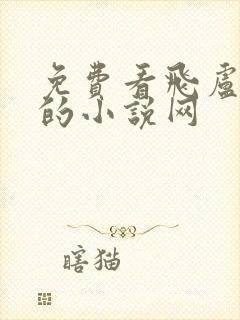 免費看飛盧
的小說网
瞎猫